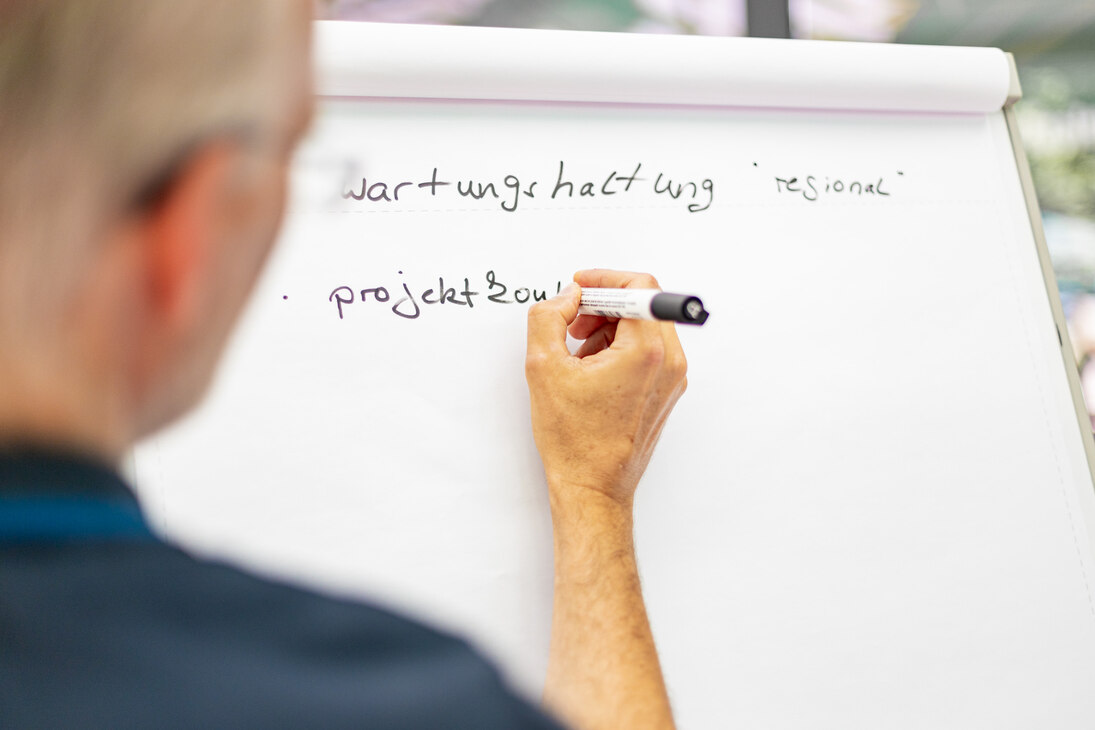 wartungshaltung "regional"
· projekt